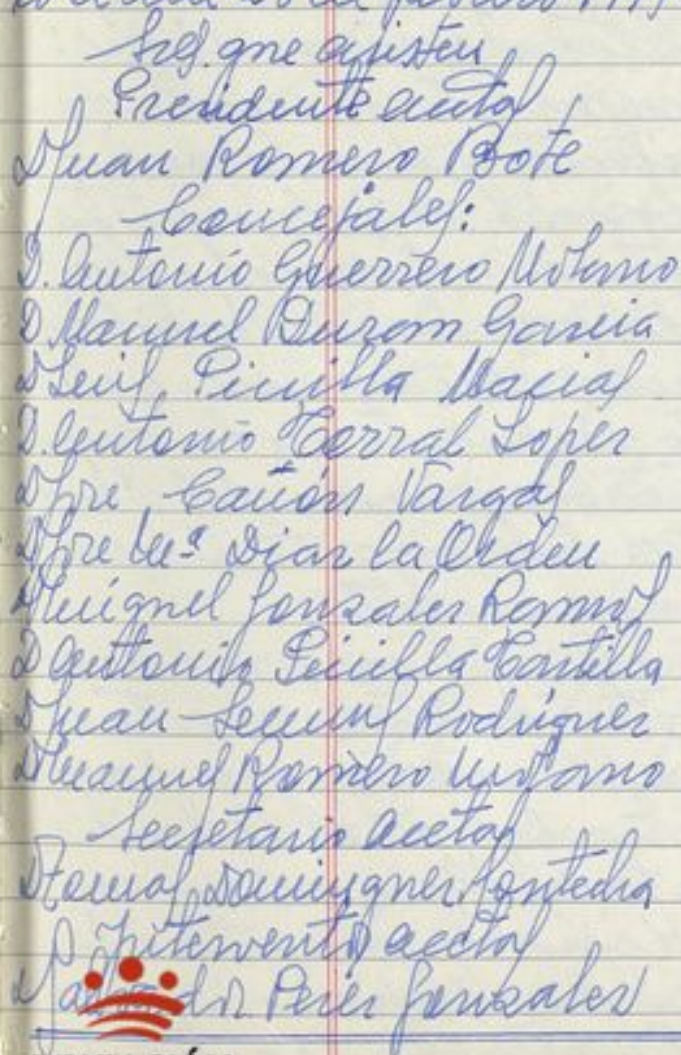 Srs. que asisten
Presidente acctal
D Juan Romero Bote
Concejales:
D. Antonio Guerrero Molano
D Manuel Duran Garcia
D Luis Pinilla Macias
D. Antonio Corral Lopez
D Jose Cañon Vargas
D Jose Mª Diaz la Orden
D Miguel Gonzalez Ramos
D Antonio Pinilla Castilla
D Juan Rodriguez
D Manuel Romero Molano
Secretario acctal
D Tomas Dominguez
Interventor acctal
D Salvador Perez Gonzalez